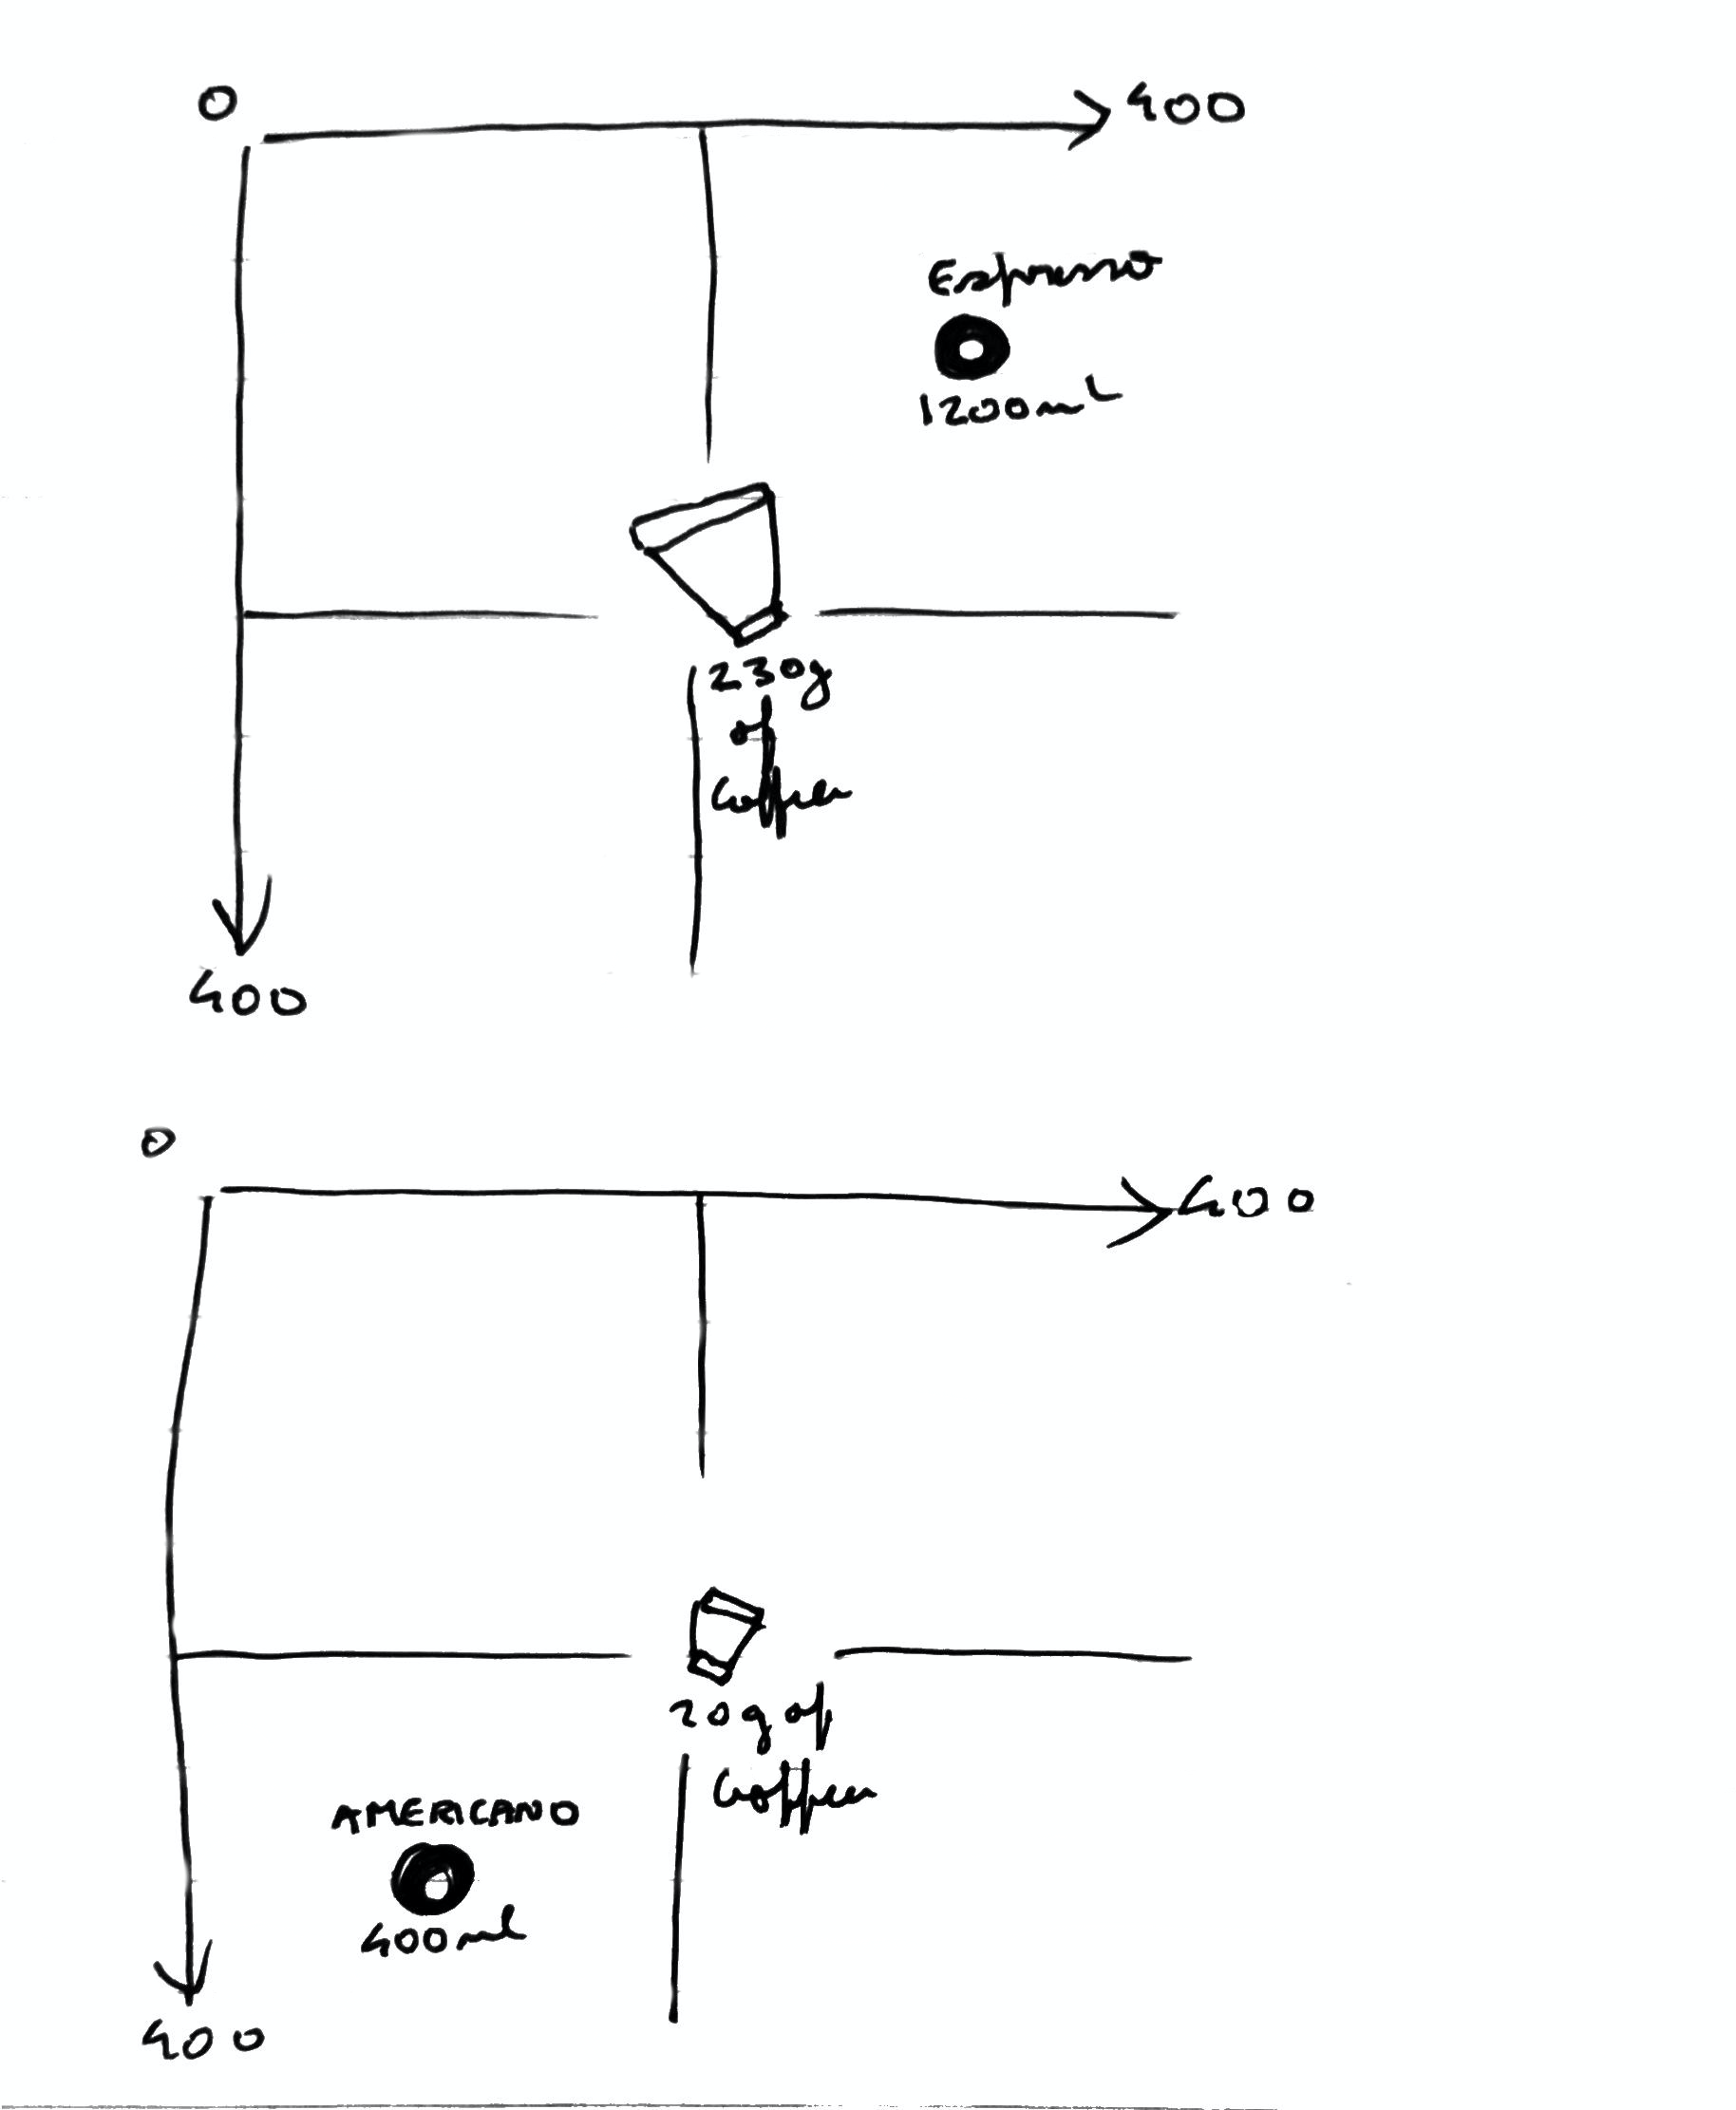 0
400
Espresso
1200ml
230g
of
Coffee
400
0
400
20g of
Coffee
AMERICANO
400ml
400